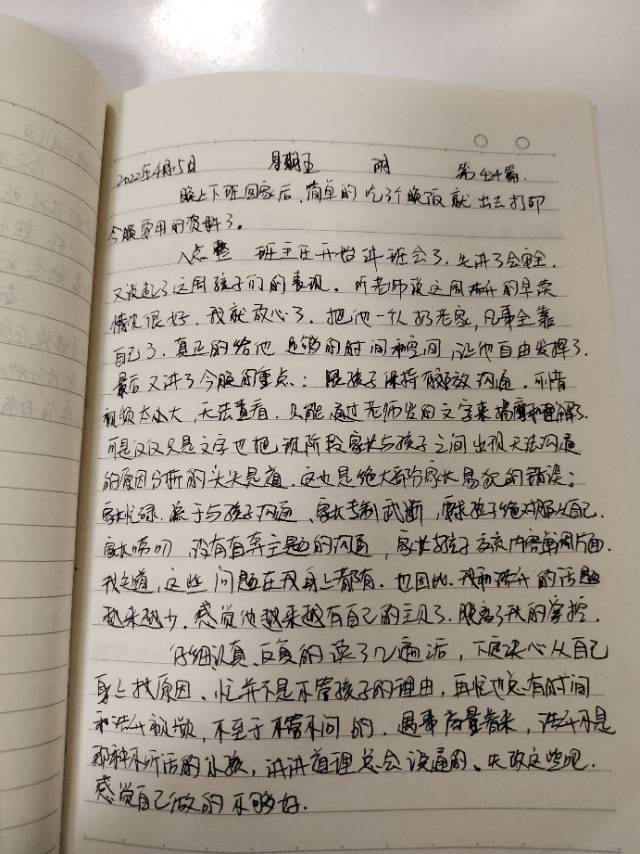 2022年4月15日 星期五 雨 第44篇.
晚上下班回家后,简单的吃了个晚饭就出去打印
今晚要用的资料了。
八点整 班主任开始讲班会了.先讲了会安全.
又说起了这周孩子们的表现.听老师说这周的早读
情况很好.我就放心了.把他一人扔老家,凡事全靠
自己了.真正的给他足够的时间和空间,让他自由发挥了.
最后又讲了今晚的重点:跟孩子保持有效沟通.可惜
视频太大,无法查看.只能通过老师发的文字来揣摩和理解了.
可是仅仅只是文字也把现阶段家长与孩子之间出现无法沟通
的原因分析的头头是道.这也是绝大部份家长易犯的错误:
家长忙碌.急于与孩子沟通、家长专制武断,要求孩子绝对服从自己.
家长唠叨,没有有弃主题的沟通,家长与孩子交流内容单调片面.
我知道,这些问题在我身上都有.也因此.我和浩升的话题
越来越少.感觉他越来越有自己的主见了.脱离了我的掌控.
仔细认真、反复的读了几遍后,下定决心从自己
身上找原因、忙并不是不管孩子的理由,再忙也总有时间
和浩升视频,不至于不管不问的.遇事商量着来,浩升不是
那种不听话的小孩,讲讲道理总会说通的、先改这些吧.
感觉自己做的不够好.